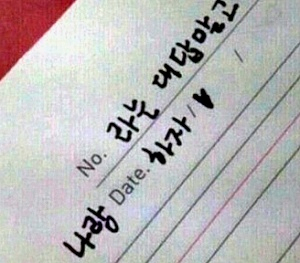 No. 라는 대답말고
나랑 Date. 하자 / /